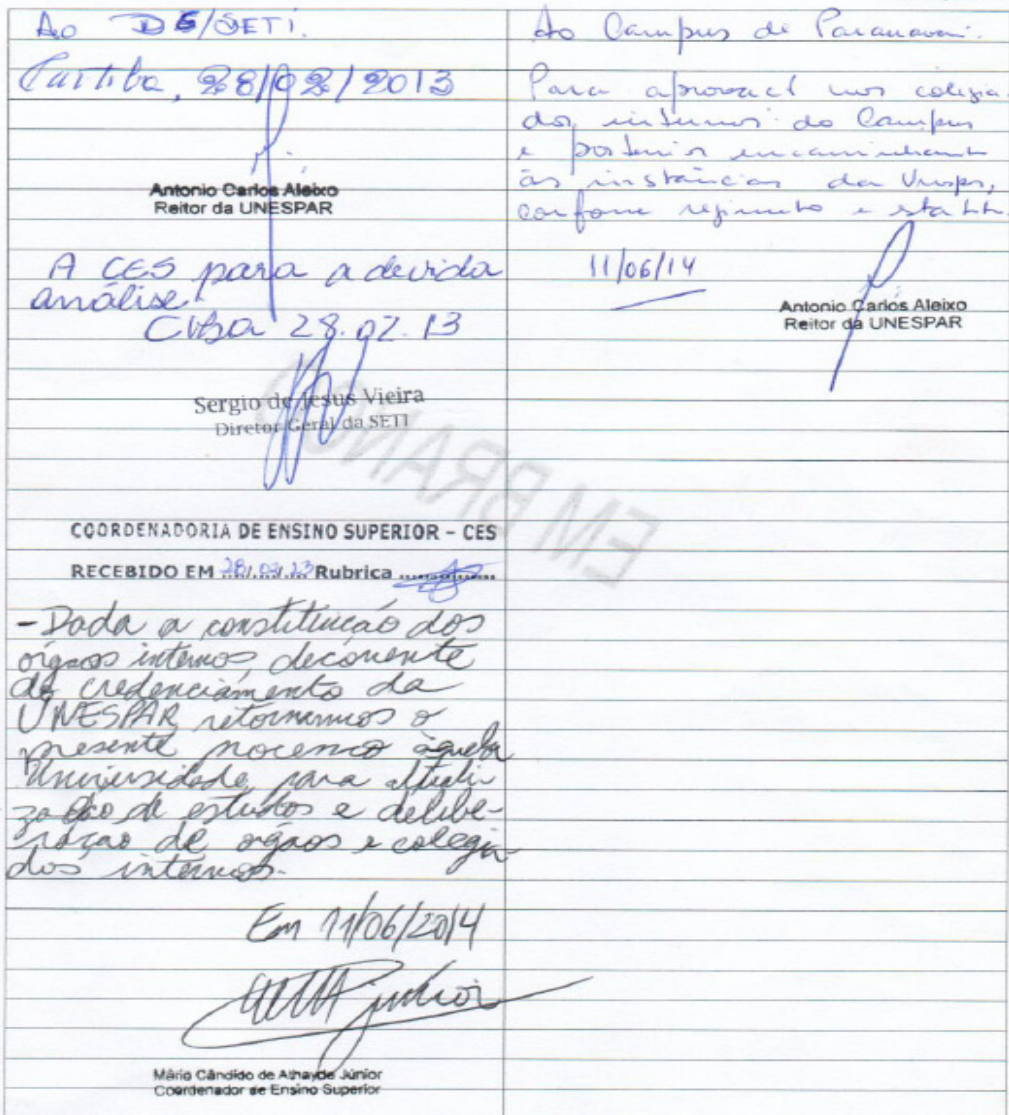 Ao DG/SETI.
Curitiba, 28/02/2013
Antonio Carlos Aleixo
Reitor da UNESPAR
A CES para a devida
análise.
Ctba 28.02.13
Sergio de Jesus Vieira
Diretor Geral da SETI
EM BRANCO
COORDENADORIA DE ENSINO SUPERIOR – CES
RECEBIDO EM 28/02/13 Rubrica
- Dada a constituição dos
órgãos internos, decorrente
do credenciamento da
UNESPAR retornamos o
presente processo àquela
Universidade para atuali
zação de estudos e delibe-
ração de órgãos e colegia
dos internos.
Em 11/06/2014
Júnior
Mário Cândido de Athayde Júnior
Coordenador de Ensino Superior
Ao Campus de Paranavaí.
Para aprovaçãol nos colegia
dos internos do Campus
e posterior encaminhament
às instâncias da Unespar,
conforme regimento e estatut.
11/06/14
Antonio Carlos Aleixo
Reitor da UNESPAR